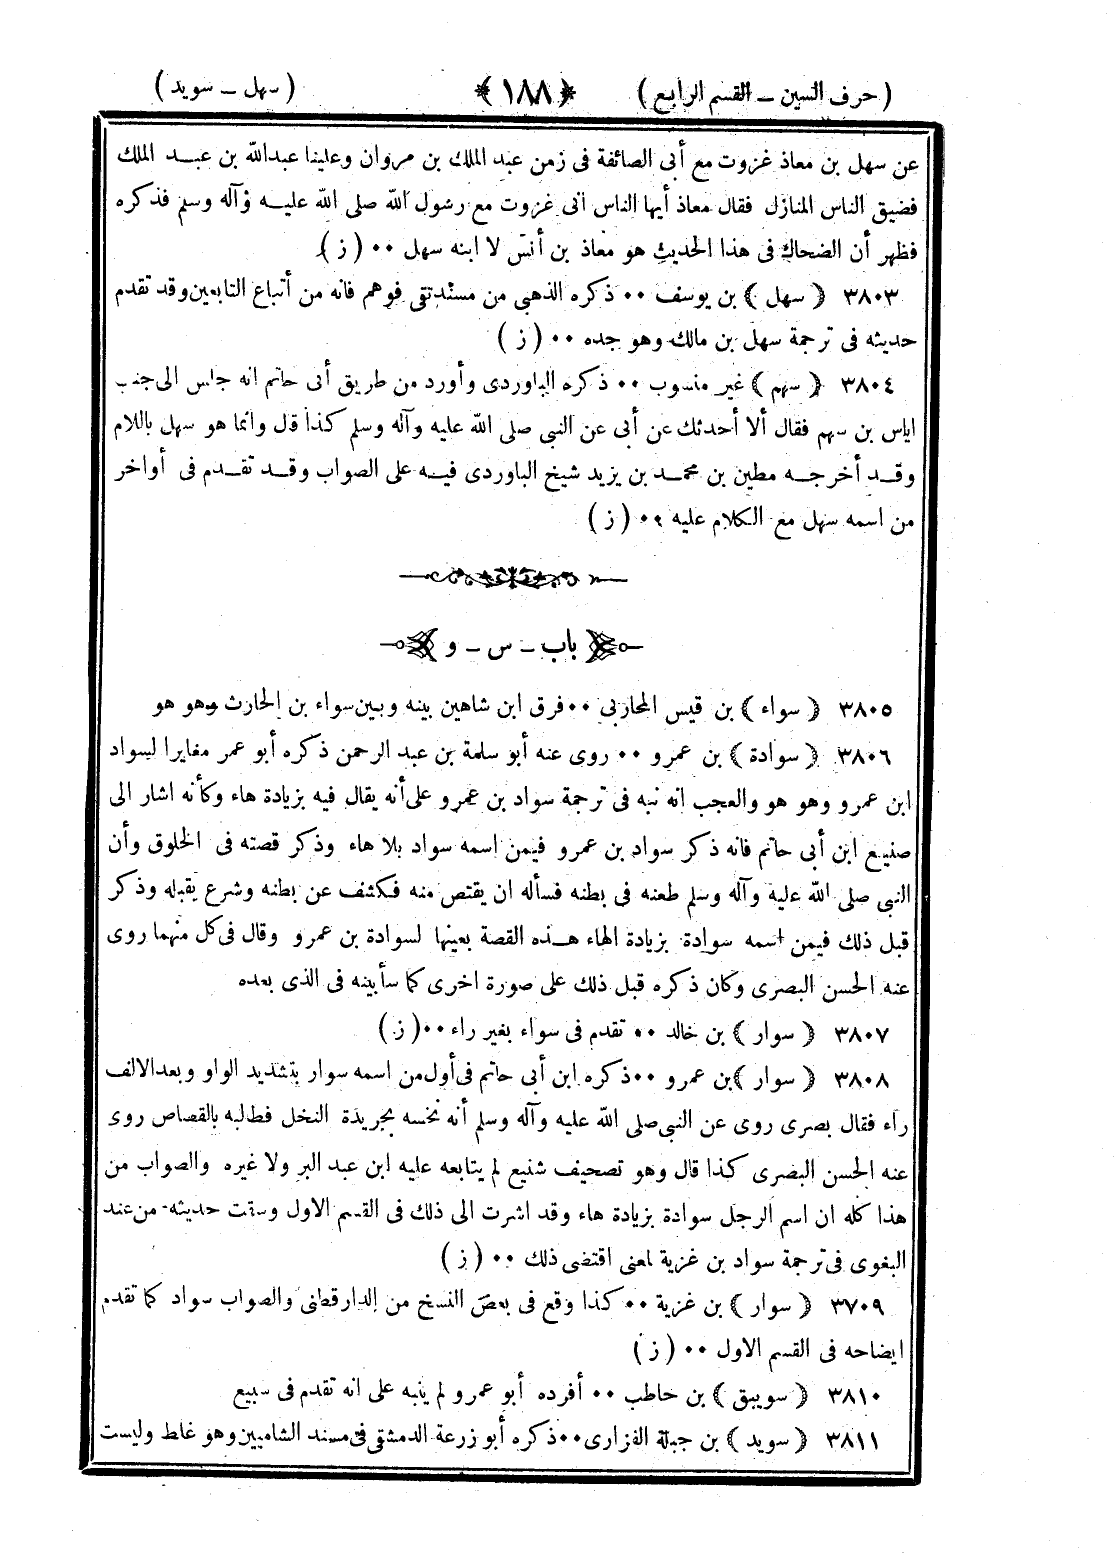 ( حرف السين ــ القسم الرابع ) ﴿ ١٨٨ ﴾ ( سهل ــ سويد )
عن سهل بن معاذ غزوت مع أبى الصائفة فى زمن عبد الملك بن مروان وعلينا عبدالله بن عبـد الملك
فضيق الناس المنازل فقال معاذ أيها الناس انى غزوت مع رسول الله صلى الله عليـه وآله وسلم فذكره
فظهر أن الضحاك فى هذا الحديث هو معاذ بن أنس لا ابنه سهل ٠٠ ( ز )
٣٨٠٣ ﴿ سهل ﴾ بن يوسف ٠٠ ذكره الذهبى من مسند تقى فوهم فانه من أتباع التابعين وقد تقدم
حديثه فى ترجمة سهل بن مالك وهو جده ٠٠ ( ز )
٣٨٠٤ ﴿ سهم ﴾ غير منسوب ٠٠ ذكره الباوردى وأورد من طريق أبى حاتم انه جلس الى جنب
اياس بن سهم فقال ألا أحدثك عن أبى عن النبى صلى الله عليه وآله وسلم كذا قال وانما هو سهل باللام
وقـد أخرجـه مطين بن محمـد بن يزيد شيخ الباوردى فيـه على الصواب وقـد تقـدم فى أواخر
من اسمه سهل مع الكلام عليه ٠٠ ( ز )
باب ــ س ــ و
٣٨٠٥ ﴿ سواء ﴾ بن قيس المحاربى ٠٠ فرق ابن شاهين بينه وبين سواء بن الحارث وهو هو
٣٨٠٦ ﴿ سوادة ﴾ بن عمرو ٠٠ روى عنه أبو سلمة بن عبد الرحمن ذكره أبو عمر مغايرا لسواد
ابن عمرو وهو هو والعجب انه نبه فى ترجمة سواد بن عمرو على أنه يقال فيه بزيادة هاء وكأنه اشار الى
صنيع ابن أبى حاتم فانه ذكر سواد بن عمرو فيمن اسمه سواد بلا هاء وذكر قصته فى الخلوق وأن
النبى صلى الله عليه وآله وسلم طعنه فى بطنه فسأله ان يقتص منه فكشف عن بطنه وشرع يقبله وذكر
قبل ذلك فيمن اسمه سوادة بزيادة الهاء هـذه القصة بعينها لسوادة بن عمرو وقال فى كل منهما روى
عنه الحسن البصرى وكان ذكره قبل ذلك على صورة اخرى كما سأبينه فى الذى بعده
٣٨٠٧ ﴿ سوار ﴾ بن خالد ٠٠ تقدم فى سواء بغير راء ٠٠ ( ز )
٣٨٠٨ ﴿ سوار ﴾ بن عمرو ٠٠ ذكره ابن أبى حاتم فى أول من اسمه سوار بتشديد الواو وبعد الالف
راء فقال بصرى روى عن النبى صلى الله عليه وآله وسلم أنه نخسه بجريدة النخل فطالبه بالقصاص روى
عنه الحسن البصرى كذا قال وهو تصحيف شنيع لم يتابعه عليه ابن عبد البر ولا غيره والصواب من
هذا كله ان اسم الرجل سوادة بزيادة هاء وقد اشرت الى ذلك فى القسم الاول وسقت حديثه من عند
البغوى فى ترجمة سواد بن غزية لمعنى اقتضى ذلك ٠٠ ( ز )
٣٧٠٩ ﴿ سوار ﴾ بن غزية ٠٠ كذا وقع فى بعض النسخ من الدارقطنى والصواب سواد كما تقدم
ايضاحه فى القسم الاول ٠٠ ( ز )
٣٨١٠ ﴿ سويبق ﴾ بن حاطب ٠٠ أفرده أبو عمرو لم ينبه على انه تقدم فى سبيع
٣٨١١ ﴿ سويد ﴾ بن جبلة الفزارى ٠٠ ذكره أبو زرعة الدمشقى فى مسند الشاميين وهو غلط وليست